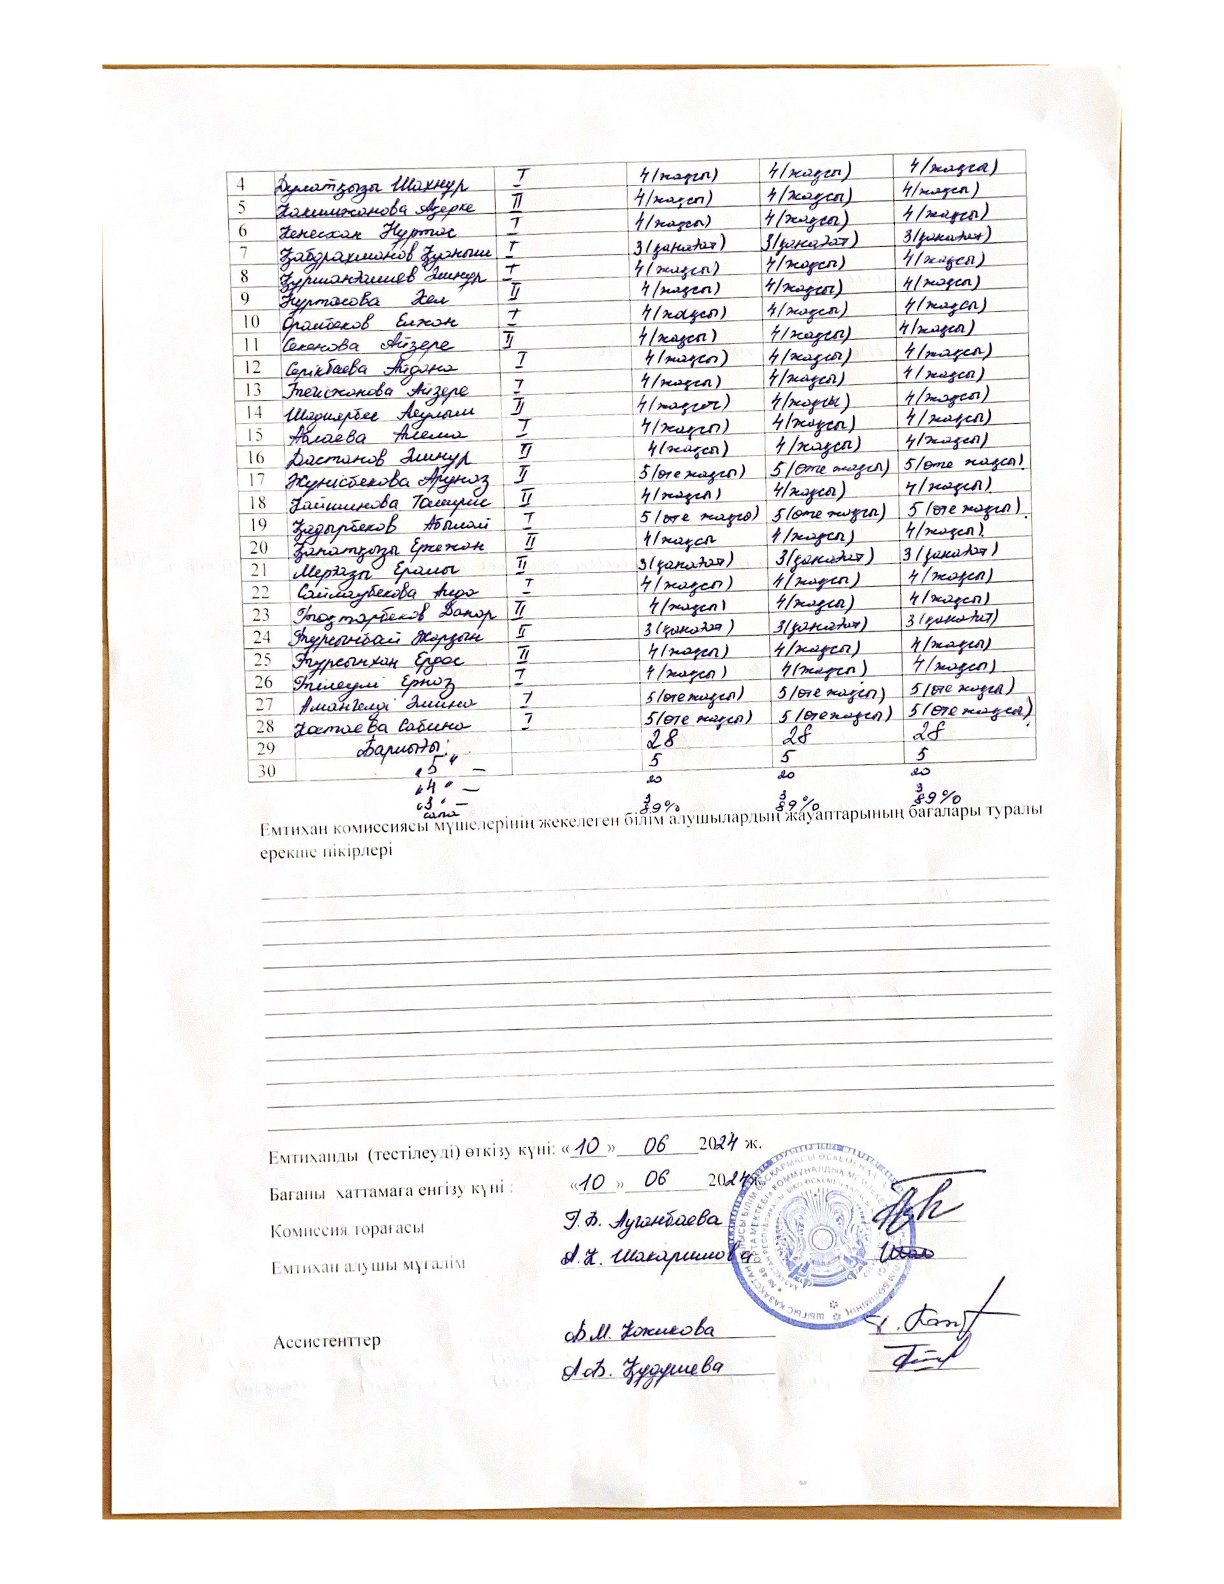 4 Дулатқызы Шахнур I 4 (жақсы) 4 (жақсы) 4 (жақсы)
5 Какимжанова Ақерке II 4 (жақсы) 4 (жақсы) 4 (жақсы)
6 Кенесхан Нұртас I 4 (жақсы) 4 (жақсы) 4 (жақсы)
7 Қабдрахманов Қуаныш I 3 (қанағат) 3 (қанағат) 3 (қанағат)
8 Құрманғалиев Әлинұр I 4 (жақсы) 4 (жақсы) 4 (жақсы)
9 Нуртасова II 4 (жақсы) 4 (жақсы) 4 (жақсы)
10 Оралбеков Елжан I 4 (жақсы) 4 (жақсы) 4 (жақсы)
11 Секенова Айзере II 4 (жақсы) 4 (жақсы) 4 (жақсы)
12 Серікбаева Айдана I 4 (жақсы) 4 (жақсы) 4 (жақсы)
13 Айзере I 4 (жақсы) 4 (жақсы) 4 (жақсы)
14 Шадиярбек Ақулым II 4 (жақсы) 4 (жақсы) 4 (жақсы)
15 Абаева I 4 (жақсы) 4 (жақсы) 4 (жақсы)
16 Дастанов Әлинұр II 4 (жақсы) 4 (жақсы) 4 (жақсы)
17 Жунісбекова Аружаз II 5 (өте жақсы) 5 (өте жақсы) 5 (өте жақсы)
18 Томирис II 4 (жақсы) 4 (жақсы) 4 (жақсы)
19 Қадырбеков Абылай I 5 (өте жақсы) 5 (өте жақсы) 5 (өте жақсы)
20 Қанатқызы Еркежан II 4 (жақсы 4 (жақсы) 4 (жақсы)
21 Мерғазы Ералы II 3 (қанағат) 3 (қанағат) 3 (қанағат)
22 Сайлаубекова Аида I 4 (жақсы) 4 (жақсы) 4 (жақсы)
23 Тоқтарбеков Данар II 4 (жақсы) 4 (жақсы) 4 (жақсы)
24 Тұрсынбай II 3 (қанағат) 3 (қанағат) 3 (қанағат)
25 Тұрсынхан Ердос II 4 (жақсы) 4 (жақсы) 4 (жақсы)
26 Тілеулі Ерназ I 4 (жақсы) 4 (жақсы) 4 (жақсы)
27 Амангелді Әмина I 5 (өте жақсы) 5 (өте жақсы) 5 (өте жақсы)
28 Сабина I 5 (өте жақсы) 5 (өте жақсы) 5 (өте жақсы)
29 Барлығы: 28 28 28
30 "5" – 5 5 5
"4" – 20 20 20
"3" – 3 3 3
сапа 89% 89% 89%
Емтихан комиссиясы мүшелерінің жекелеген білім алушылардың жауаптарының бағалары туралы
ерекше пікірлері
Емтиханды (тестілеуді) өткізу күні: «10» 06 2024 ж.
Бағаны хаттамаға енгізу күні : «10» 06 2024
Комиссия төрағасы Г.Б. Ауганбаева
Емтихан алушы мұғалім А.К. Шакаримова
Ассистенттер Б.М. Кожикова